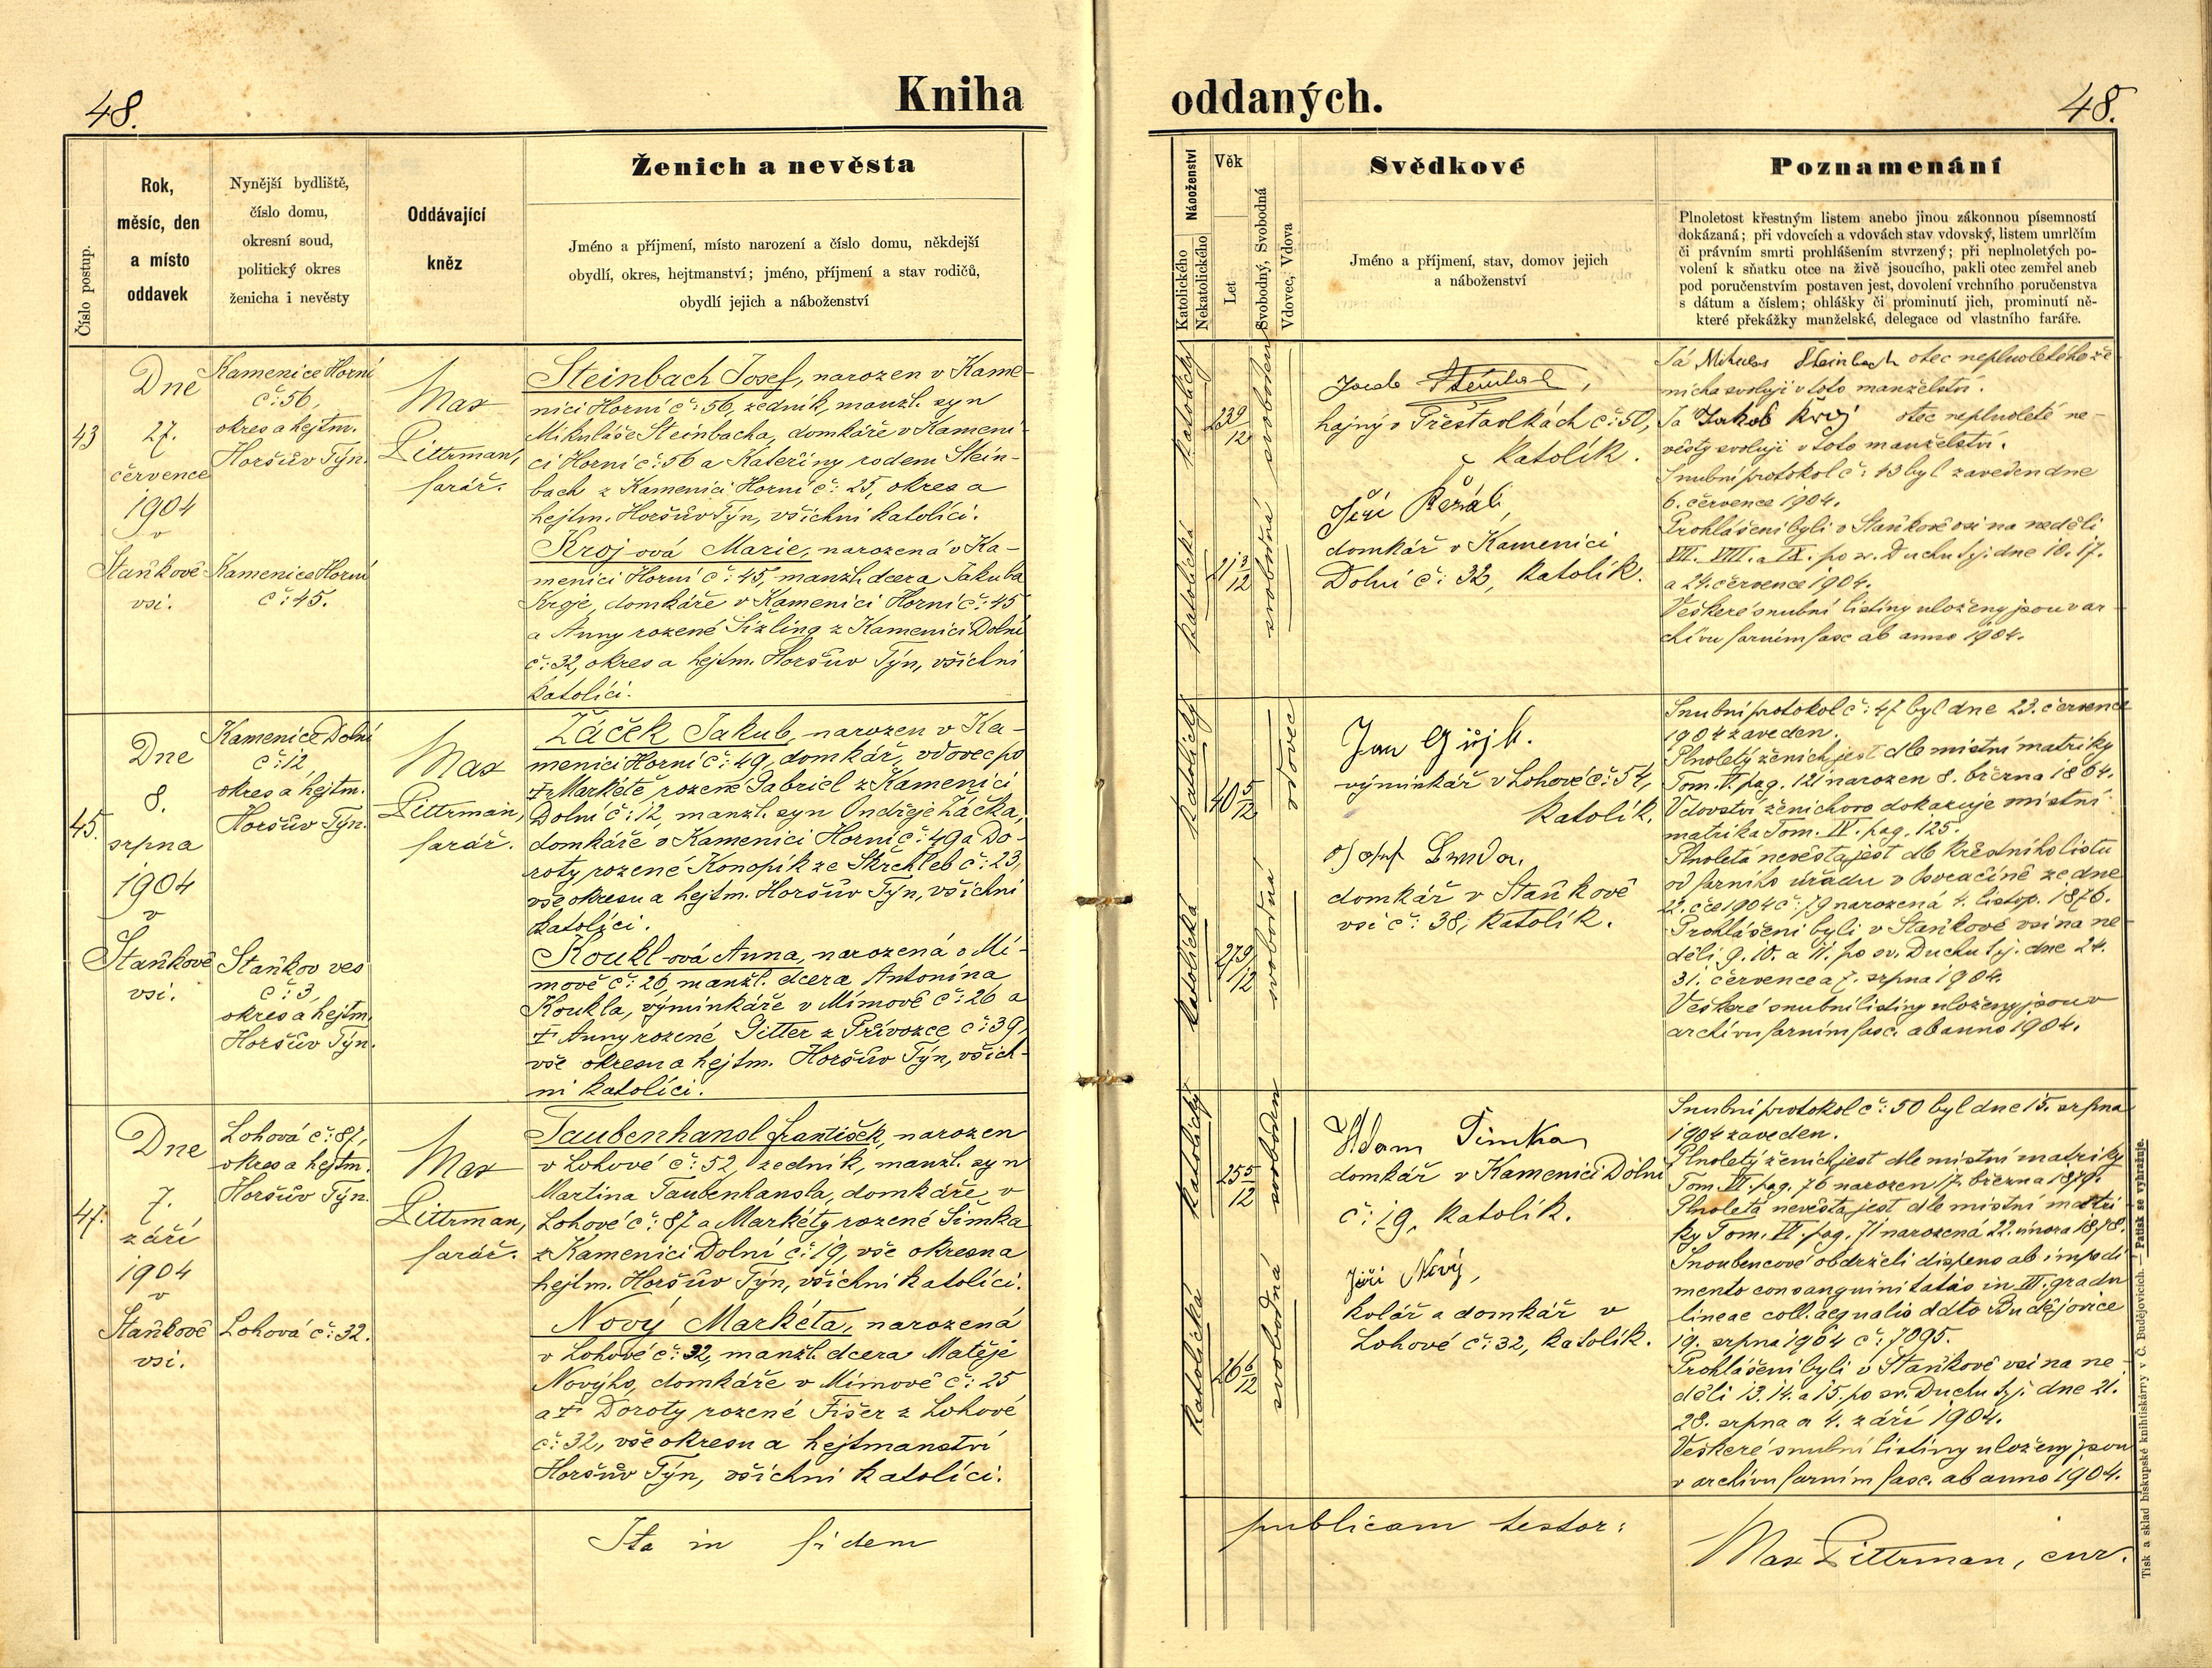 48.
Kniha
Číslo postup.
Rok,
měsíc, den
a místo
oddavek
Nynější bydliště,
číslo domu,
okresní soud,
politický okres
ženicha i nevěsty
Oddávající
kněz
Ženich a nevěsta
Jméno a příjmení, místo narození a číslo domu, někdejší
obydlí, okres, hejtmanství; jméno, příjmení a stav rodičů,
obydlí jejich a náboženství
43
Dne
27.
července
1904
v
Staňkově
vsi.
Kamenice Horní
č: 56,
okres a hejtm.
Horšův Týn.
Kamenice Horní
č: 45.
Max
Pittrman,
farář.
Steinbach Josef, narozen v Kame-
nici Horní č: 56, zedník, manžl. syn
Mikuláše Steinbacha, domkáře v Kameni-
ci Horní č: 56 a Kateřiny rodem Stein-
bach z Kamenici Horní č: 25, okres a
hejtm. Horšův Týn, všichni katolíci.
Kroj-ová Marie, narozená v Ka-
menici Horní č: 45, manžl. dcera Jakuba
Kroje, domkáře v Kamenici Horní č: 45
a Anny rozené Sizling z Kamenici Dolní
č: 32, okres a hejtm. Horšův Týn, všichni
katolíci.
45.
Dne
8.
srpna
1904
v
Staňkově
vsi.
Kamenice Dolní
č: 12,
okres a hejtm.
Horšův Týn.
Staňkov ves
č: 3,
okres a hejtm.
Horšův Týn.
Max
Pittrman,
farář.
Žáček Jakub, narozen v Ka-
menici Horní č: 49, domkář, vdovec po
† Markétě rozené Gabriel z Kamenici
Dolní č: 12, manžl. syn Ondřeje Žáčka,
domkáře v Kamenici Horní č: 49 a Do-
roty rozené Konopík ze Škrchleb č: 23,
vše okresu a hejtm. Horšův Týn, všichni
katolíci.
Koukl-ová Anna, narozená v Mí-
mově č: 26, manžl. dcera Antonína
Koukla, výminkáře v Mímově č: 26 a
† Anny rozené Pitter z Přívozce č: 39,
vše okresu a hejtm. Horšův Týn, všich-
ni katolíci.
47.
Dne
7.
září
1904
v
Staňkově
vsi.
Lohová č: 87,
okres a hejtm.
Horšův Týn.
Lohová č: 32.
Max
Pittrman,
farář.
Taubenhansl František, narozen
v Lohové č: 52, zedník, manžl. syn
Martina Taubenhansla, domkáře v
Lohové č: 87 a Markéty rozené Šimka
z Kamenici Dolní č: 19, vše okresu a
hejtm. Horšův Týn, všichni katolíci.
Nový Markéta, narozená
v Lohové č: 32, manžl. dcera Matěje
Nového, domkáře v Mímově č: 25
a † Doroty rozené Fišer z Lohové
č: 32, vše okresu a hejtmanství
Horšův Týn, všichni katolíci.
Ita in fidem
oddaných.
48.
Náboženství
Katolického
Nekatolického
Věk
Let
Svobodný, Svobodná
Vdovec, Vdova
Svědkové
Jméno a příjmení, stav, domov jejich
a náboženství
Poznamenání
Plnoletost křestným listem anebo jinou zákonnou písemností
dokázaná; při vdovcích a vdovách stav vdovský, listem umrlčím
či právním smrti prohlášením stvrzený; při neplnoletých po-
volení k sňatku otce na živě jsoucího, pakli otec zemřel aneb
pod poručenstvím postaven jest, dovolení vrchního poručenstva
s dátum a číslem; ohlášky či prominutí jich, prominutí ně-
které překážky manželské, delegace od vlastního faráře.
katolický
23 9/12
svoboden
katolická
21 3/12
svobodná
Steinbach,
hajný v Přestavlkách č: 50,
katolík.
Jiří Řežáb,
domkář v Kamenici
Dolní č: 32, katolík.
Já Mikulas Steinbach otec neplnoletého že-
nicha svoluji v toto manželství.
Já Jakob Kroj otec neplnoleté ne-
věsty svoluji v toto manželství.
Snubní protokol č: 43 byl zaveden dne
6. července 1904.
Prohlášeni byli v Staňkově vsi na neděli
VII. VIII. a IX. po sv. Duchu tj. dne 10. 17.
a 24. července 1904.
Veškeré snubní listiny uloženy jsou v ar-
chivu farním fasc ab anno 1904.
katolický
40 5/12
vdovec
katolická
27 9/12
svobodná
Jan
výminkář v Lohové č: 54,
katolík.
Josef
domkář v Staňkově
vsi č: 38, katolík.
Snubní protokol č: 47 byl dne 23. července
1904 zaveden.
Plnoletý ženich jest dle místní matriky
Tom. V. pag. 121 narozen 8. března 1864.
Vdovství ženichovo dokazuje místní
matrika Tom. IV. pag. 125.
Plnoletá nevěsta jest dle křestního listu
od farního úřadu v Osvračíně ze dne
22. čce 1904 č: 79 narozená 4. listop. 1876.
Prohlášeni byli v Staňkově vsi na ne-
děli 9. 10. a 11. po sv. Duchu tj. dne 24.
31. července a 7. srpna 1904.
Veškeré snubní listiny uloženy jsou v
archivu farním fasc. ab anno 1904.
katolický
25 5/12
svoboden
katolická
26 6/12
svobodná
Adam Šimka
domkář v Kamenici Dolní
č: 19, katolík.
Jiří Nový,
kolář a domkář v
Lohové č: 32, katolík.
Snubní protokol č: 50 byl dne 15. srpna
1904 zaveden.
Plnoletý ženich jest dle místní matriky
Tom. VI. pag. 76 narozen 17. března 1879.
Plnoletá nevěsta jest dle místní matri-
ky Tom. VI. pag. 71 narozená 22. února 1878.
Snoubencové obdrželi dispens ab impedi-
mento consanguinitatis in III. gradu
lineae coll. aequalis ddto Budějovice
19. srpna 1904 č: 7095.
Prohlášeni byli v Staňkově vsi na ne-
děli 13. 14. a 15. po sv. Duchu tj: dne 21.
28. srpna a 4. září 1904.
Veškeré snubní listiny uloženy jsou
v archivu farním fasc. ab anno 1904.
publicam testor:
Max Pittrman, cur.
Tisk a sklad biskupské knihtiskárny v Č. Budějovicích. — Patisk se vyhražuje.